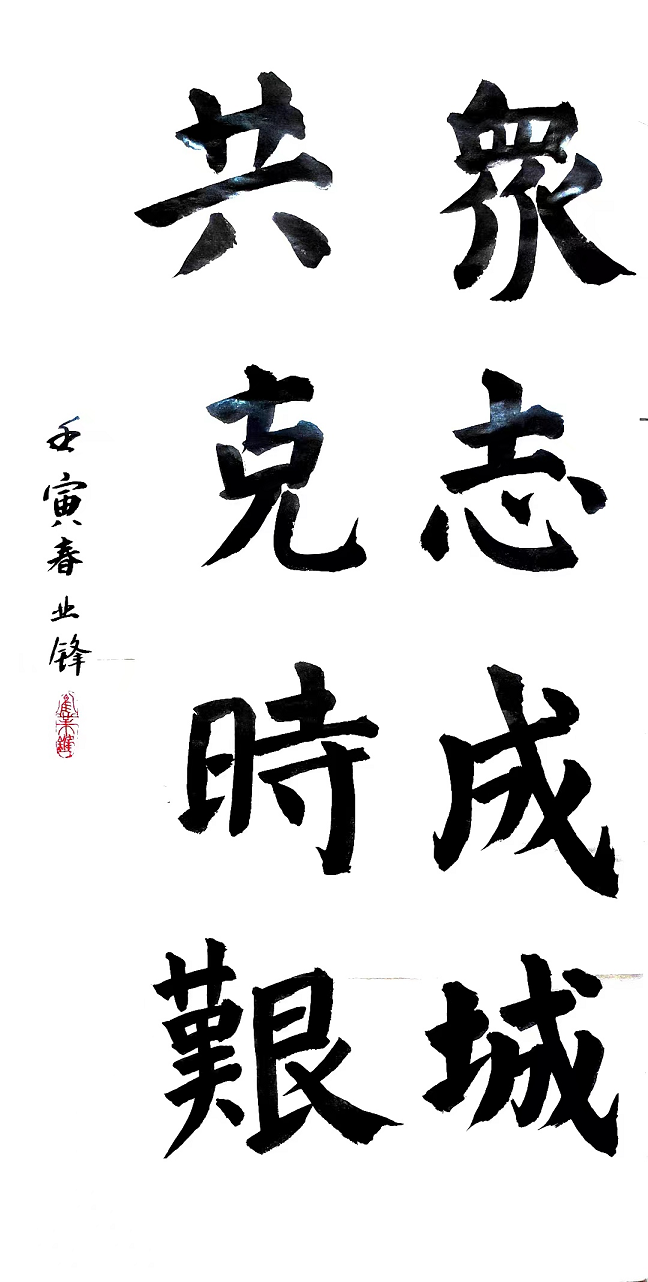 眾志成城
共克時艱
壬寅春业锋